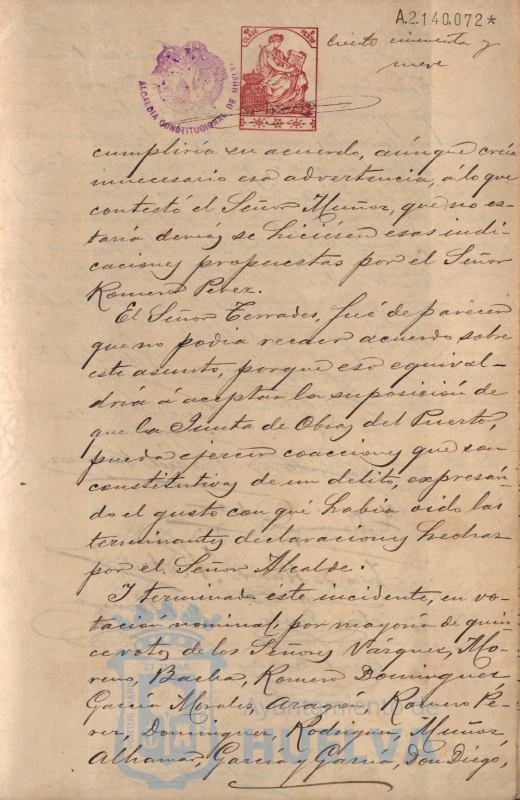 A.2.140.072*
ciento cincuenta y
nueve
ALCALDIA CONSTITUCIONAL DE HUELVA
cumpliría su acuerdo, aúnque creía
innecesario esa advertencia, á lo que
contestó el Señor Muñoz, que no es-
taría demás se hiciesen esas indi-
caciones propuestas por el Señor
Romero Perez.
El Señor Terrades, fué de parecer
que no podia recaer acuerdo sobre
este asunto, porque eso equival-
dría á aceptar la suposición de
que la Junta de Obras del Puerto,
pueda ejercer coacciones que son
constitutivas de un delito, expresan-
do el gusto con qué había oido las
terminantes declaraciones hechas
por el Señor Alcalde.
Y terminado este incidente, en vo-
tación nominal, por mayoria de quin-
ce votos de los Señores Vázquez, Mo-
reno, Barba, Romero Dominguez
García Morales, Aragón, Romero Pe-
rez, Dominguez, Rodriguez, Muñoz,
Alhamar, Garcia y Garcia, Don Diego,
Ayuntamiento de
HUELVA